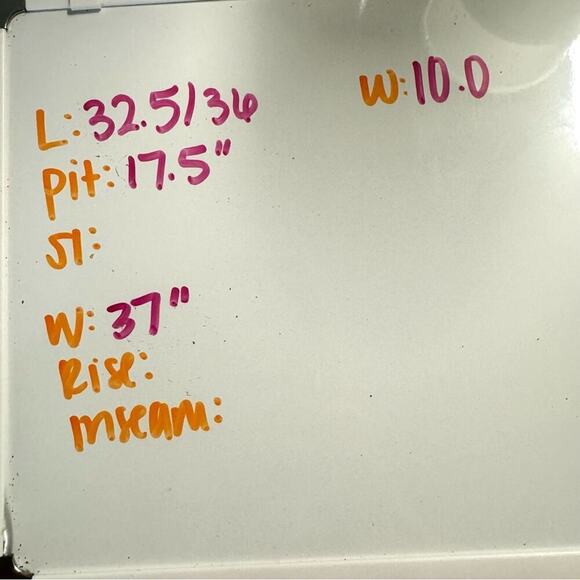 L: 32.5/36
W: 10.0
pit: 17.5"
Sl:
W: 37"
Rise:
Inseam: